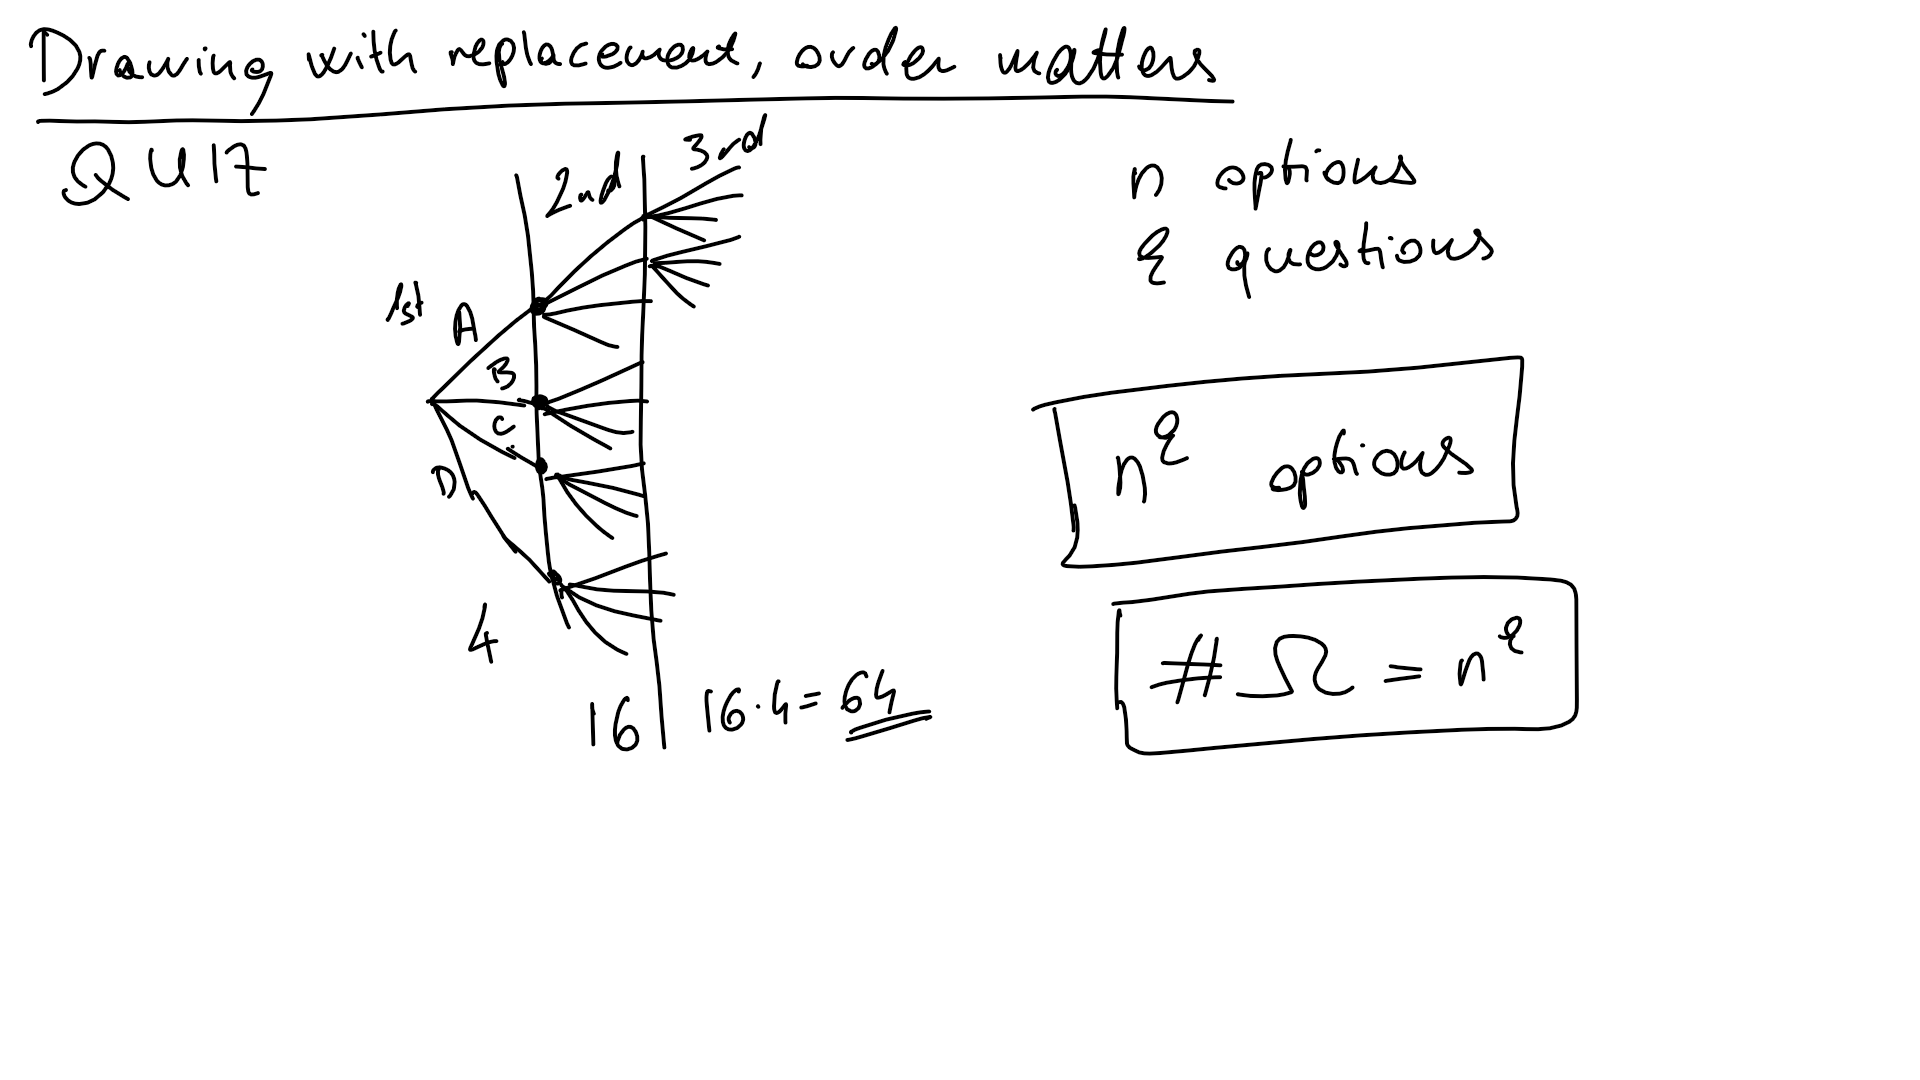 Drawing with replacement, order matters
QUIZ
1st
2nd
3rd
A
B
C
D
4
16
16·4=64
n options
k questions
n^k options
#Ω = n^k